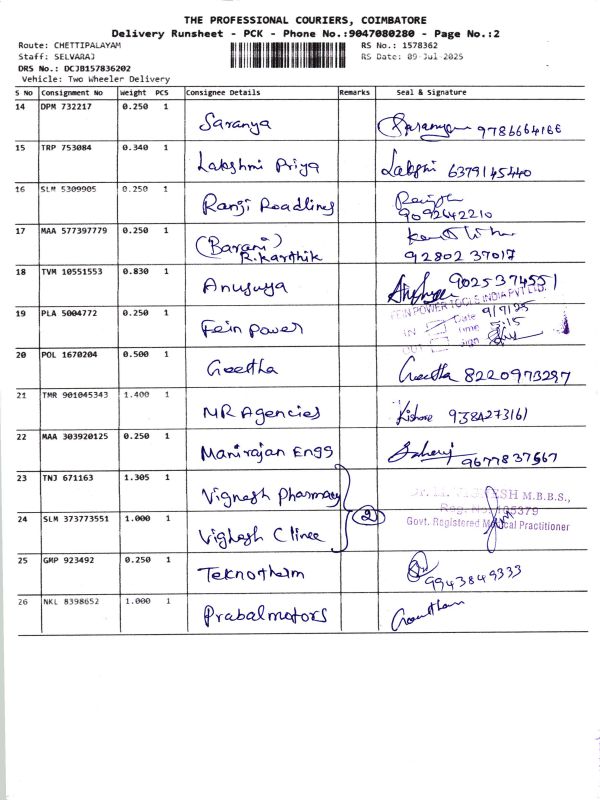 THE PROFESSIONAL COURIERS, COIMBATORE
Delivery Runsheet - PCK - Phone No.:9047080280 - Page No.:2
Route: CHETTIPALAYAM
RS No.: 1578362
Staff: SELVARAJ
RS Date: 09-Jul-2025
DRS No.: DCJB157836202
Vehicle: Two Wheeler Delivery
S No Consignment No Weight PCS Consignee Details Remarks Seal & Signature
14 DPM 732217 0.250 1 Saranya 9786664166
15 TRP 753084 0.340 1 Lakshmi Priya Lakshmi 6379145440
16 SLM 5309905 0.250 1 Ranji Roadlines
9092642210
17 MAA 577397779 0.250 1 (Barani)
R.Karthik 92802 37017
18 TVM 10551553 0.830 1 Anusuya 9025374551
19 PLA 5004772 0.250 1 Fein Power
FEIN POWER TOOLS INDIA PVT LTD.
IN Date 9/7/25
OUT Time 5:15
Sign
20 POL 1670204 0.500 1 Geetha Geetha 8220973297
21 TMR 901045343 1.400 1 MR Agencies Kishore 9384273161
22 MAA 303920125 0.250 1 Manirajan Engg 9677837567
23 TNJ 671163 1.305 1 Vignesh Pharmacy
M.B.B.S.,
Reg. No.
Govt. Registered Medical Practitioner
24 SLM 373773551 1.000 1 Vignesh Clinee
2
25 GMP 923492 0.250 1 Teknotherm 9943849333
26 NKL 8398652 1.000 1 Prabalmotors Gowtham